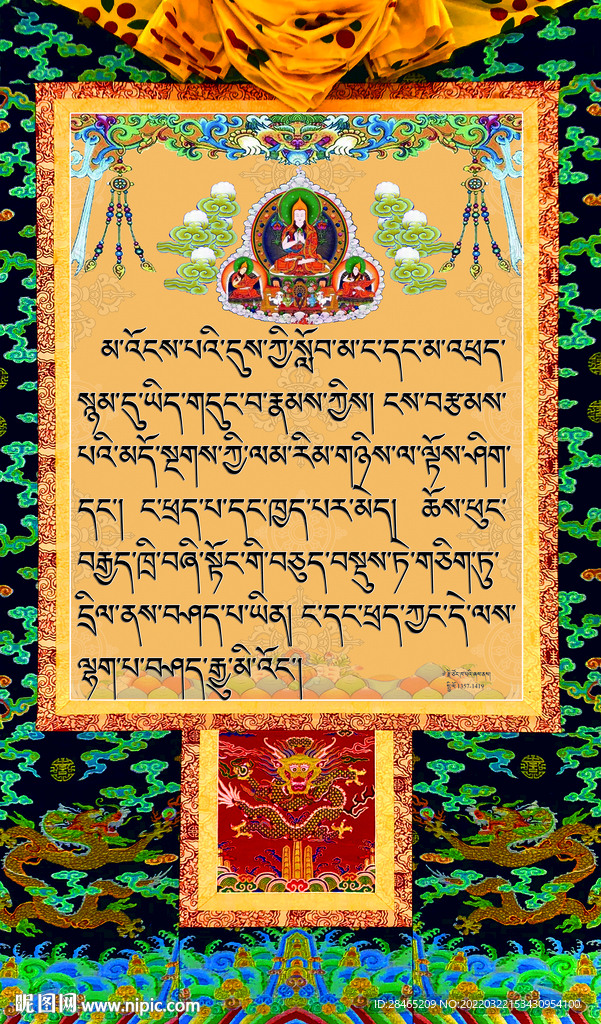 མ་འོངས་པའི་དུས་ཀྱི་སློབ་མ་ང་དང་མ་འཕྲད་
སྙམ་དུ་ཡིད་གདུང་བ་རྣམས་ཀྱིས། ངས་བརྩམས་
པའི་མདོ་སྔགས་ཀྱི་ལམ་རིམ་གཉིས་ལ་ལྟོས་ཤིག་
དང་། ང་ཕྲད་པ་དང་ཁྱད་པར་མེད། ཆོས་ཕུང་
བརྒྱད་ཁྲི་བཞི་སྟོང་གི་བཅུད་བསྡུས་ཏེ་གཅིག་ཏུ་
དྲིལ་ནས་བཤད་པ་ཡིན། ང་དང་ཕྲད་ཀྱང་དེ་ལས་
ལྷག་པ་བཤད་རྒྱུ་མི་འོང་།
1357-1419
昵图网 www.nipic.com
ID:28465209 NO:20220322153430954100